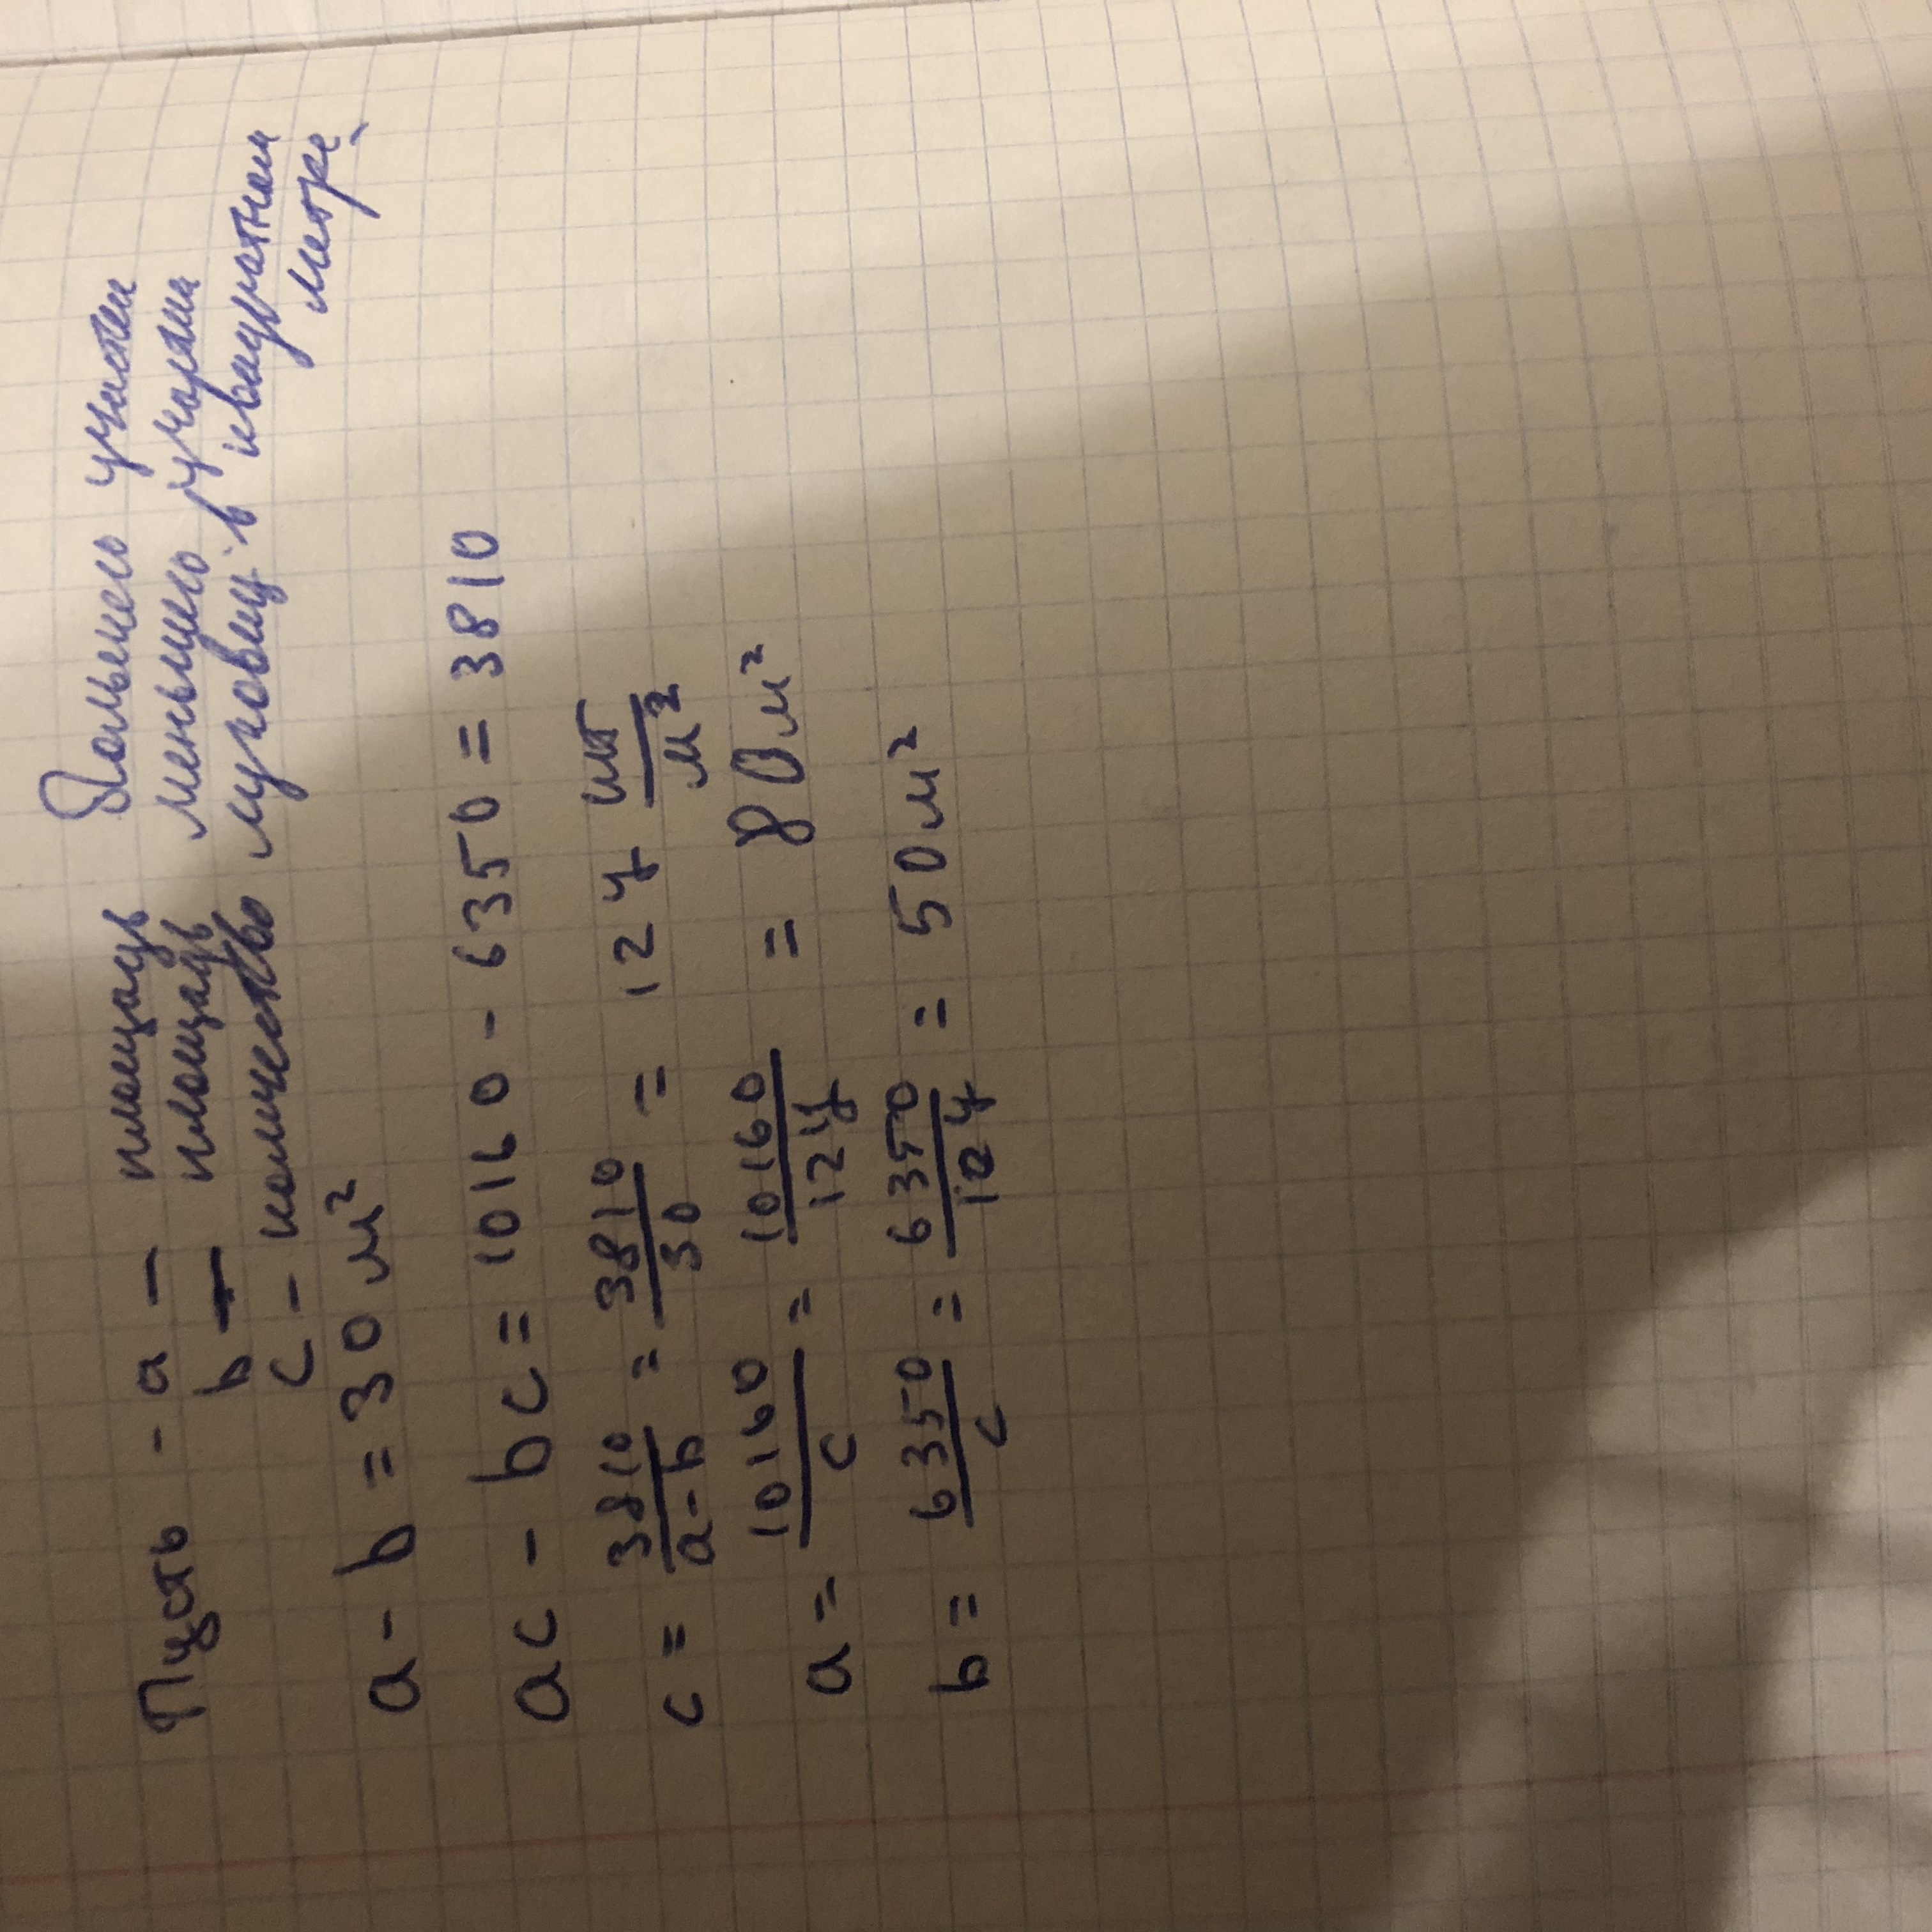 Пусть - a — площадь большего участка
b — площадь меньшего участка
c - количество луковиц в квадратном
метре
a - b = 30 м²
ac - bc = 10160 - 6350 = 3810
c = 3810/a-b = 3810/30 = 127 шт/м²
a = 10160/c = 10160/127 = 80 м²
b = 6350/c = 6350/127 = 50 м²